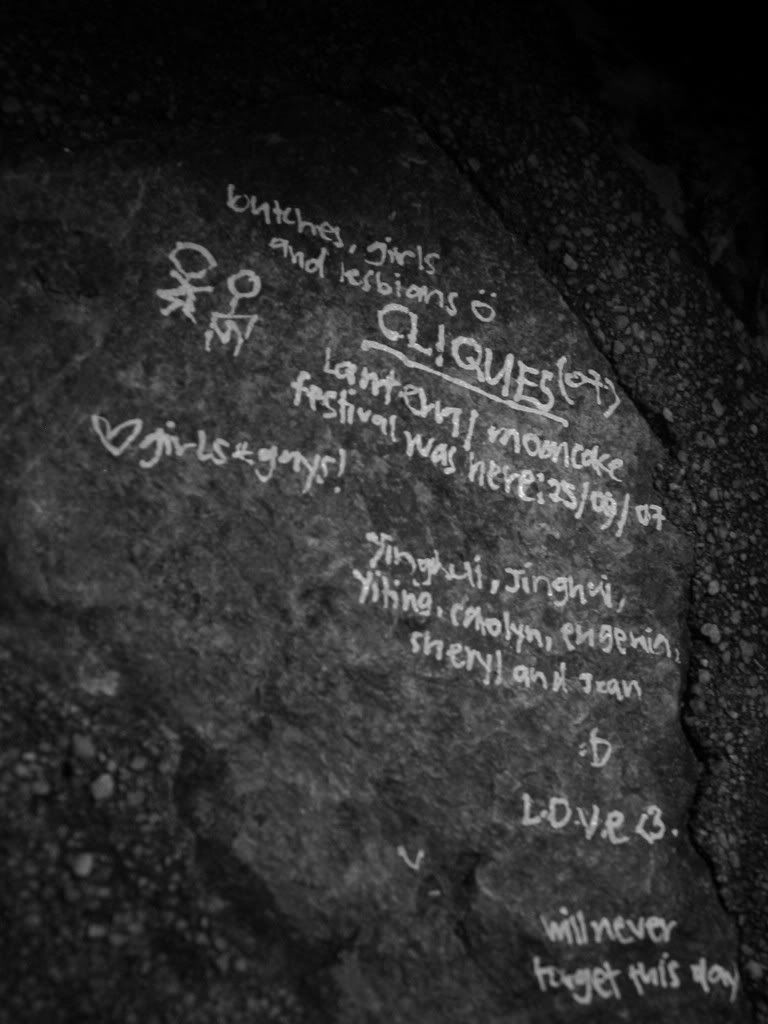 butches, girls
and lesbians ö
CL!QUES (07)
Lantern/ mooncake
festival was here: 25/09/07
♡ girls & gays!
Yinghui, Jinghui,
Yiting, carolyn, eugenia,
sheryl and Jean
:D
L.O.V.e <3.
will never
forget this day